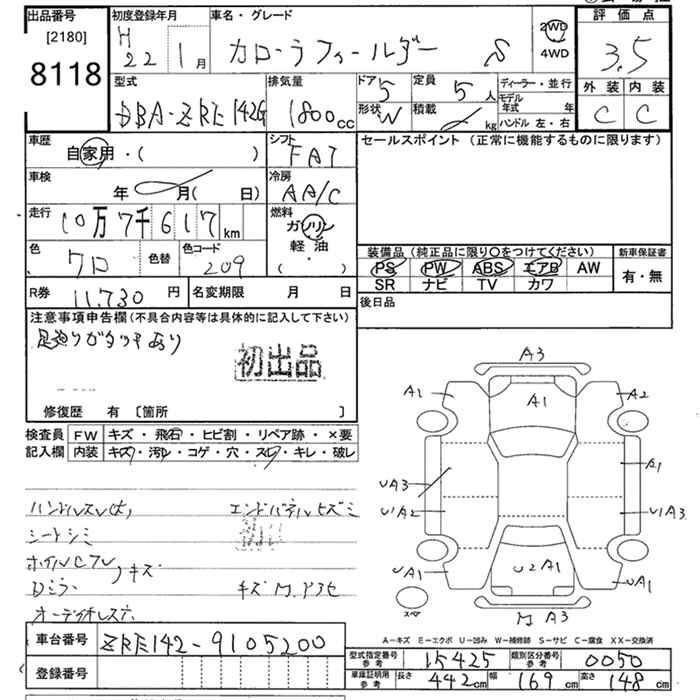 出品番号
[2180]
8118
初度登録年月
H
22 1月
車名・グレード
カローラフィールダー S
2WD
4WD
評価点
3.5
型式
DBA-ZRE142G
排気量
1800cc
ドア
5
形状
W
定員
5人
積載
kg
ディーラー・並行
モデル年式 年
ハンドル 左・右
外装 内装
C C
車歴
自家用・( )
シフト
FAT
セールスポイント (正常に機能するものに限ります)
車検
年 月( 日)
冷房
AA/C
走行
10万7千617km
燃料
ガソリン
軽油
( ・ )
色
クロ
色替
色コード
209
装備品 (純正品に限り〇をつけてください)
PS PW ABS エアB AW
SR ナビ TV カワ
新車保証書
有・無
R券 11,730 円
名変期限 月 日
後日品
注意事項申告欄(不具合内容等は具体的に記入して下さい)
足廻りガタツキあり
初出品
修復歴 有 [箇所 ]
検査員
記入欄
FW キズ・飛石・ヒビ割・リペア跡・×要
内装 キズ・汚れ・コゲ・穴・スレ・キレ・破レ
ハンドルスレ大
エンドパネルヒズミ
シートシミ
ホイルCフレ
Dミラー
キズ
キズ M アセ
オーディオレス
A3
A1
A1
A2
UA3
A1
U1A2
U1A3
UA1
U2A1
UA1
スペア
M A3
A-キズ E-エクボ U-凹み W-補修跡 S-サビ C-腐食 XX-交換済
車台番号 ZRE142-9105200
登録番号
型式指定番号 参考 15425
類別区分番号 参考 0050
車庫証明用 参考
長さ 442cm 幅 169cm 高さ 148cm